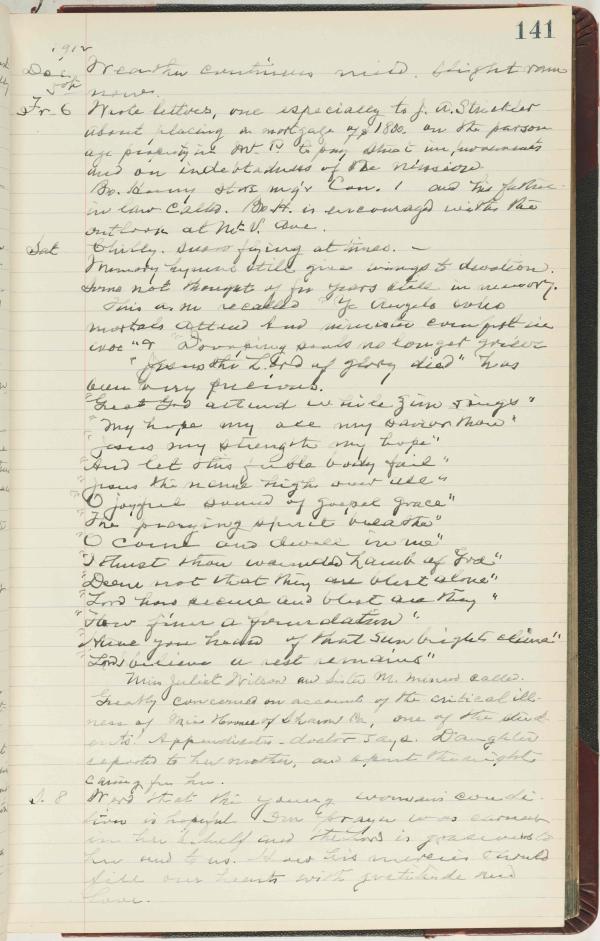 141
1912
Dec. Weather continues mild, bright
5th
Fr 6 Wrote letters, one especially to J. A. Strickler
about placing a mortgage of $1800. on the parson-
age property in Mt. P. to pay street improvements
and on indebtedness of the mission.
Bo. Henry store mg'r Con. 1 and his father-
in law called. Bo. H. is encouraged with the
outlook at Mt. V. Ave.
Sat Chilly. Snow flying at times. —
Memory hymns still give wings to devotion.
Some not thought of for years still in memory.
This a.m. recalled "Ye Angels who
mortals attend And minister comfort in
woe" & "Drooping souls no longer grieve
"Jesus the Lord of glory died" has
been very precious.
"Great God attend while Zion sings"
"My hope my all my Savior thou"
"Jesus my strength my hope"
"And let this feeble body fail"
"Jesus the name high over all"
"O joyful sound of gospel grace"
"The praying spirit breathe"
"O come and dwell in me"
"I thirst thou wounded Lamb of God"
"Deem not that they are blest alone"
"Lord how secure and blest are they"
"How firm a foundation"
"Have you heard of that sun bright clime"
"Lord I believe a rest remains"
Miss Juliet Wilson and Sister M. called.
Greatly concerned on account of the critical ill-
ness of Miss of Sharon Pa, one of the stud-
ents. Appendicitis - doctor says. Daughter
reported to her mother, and spent the night
caring for her.
S. 8 Word that the young woman's condi-
tion is hopeful. Our prayer was earnest
in her behalf and the Lord is gracious to
her and to us. How his mercies should
fill our hearts with gratitude and
love.